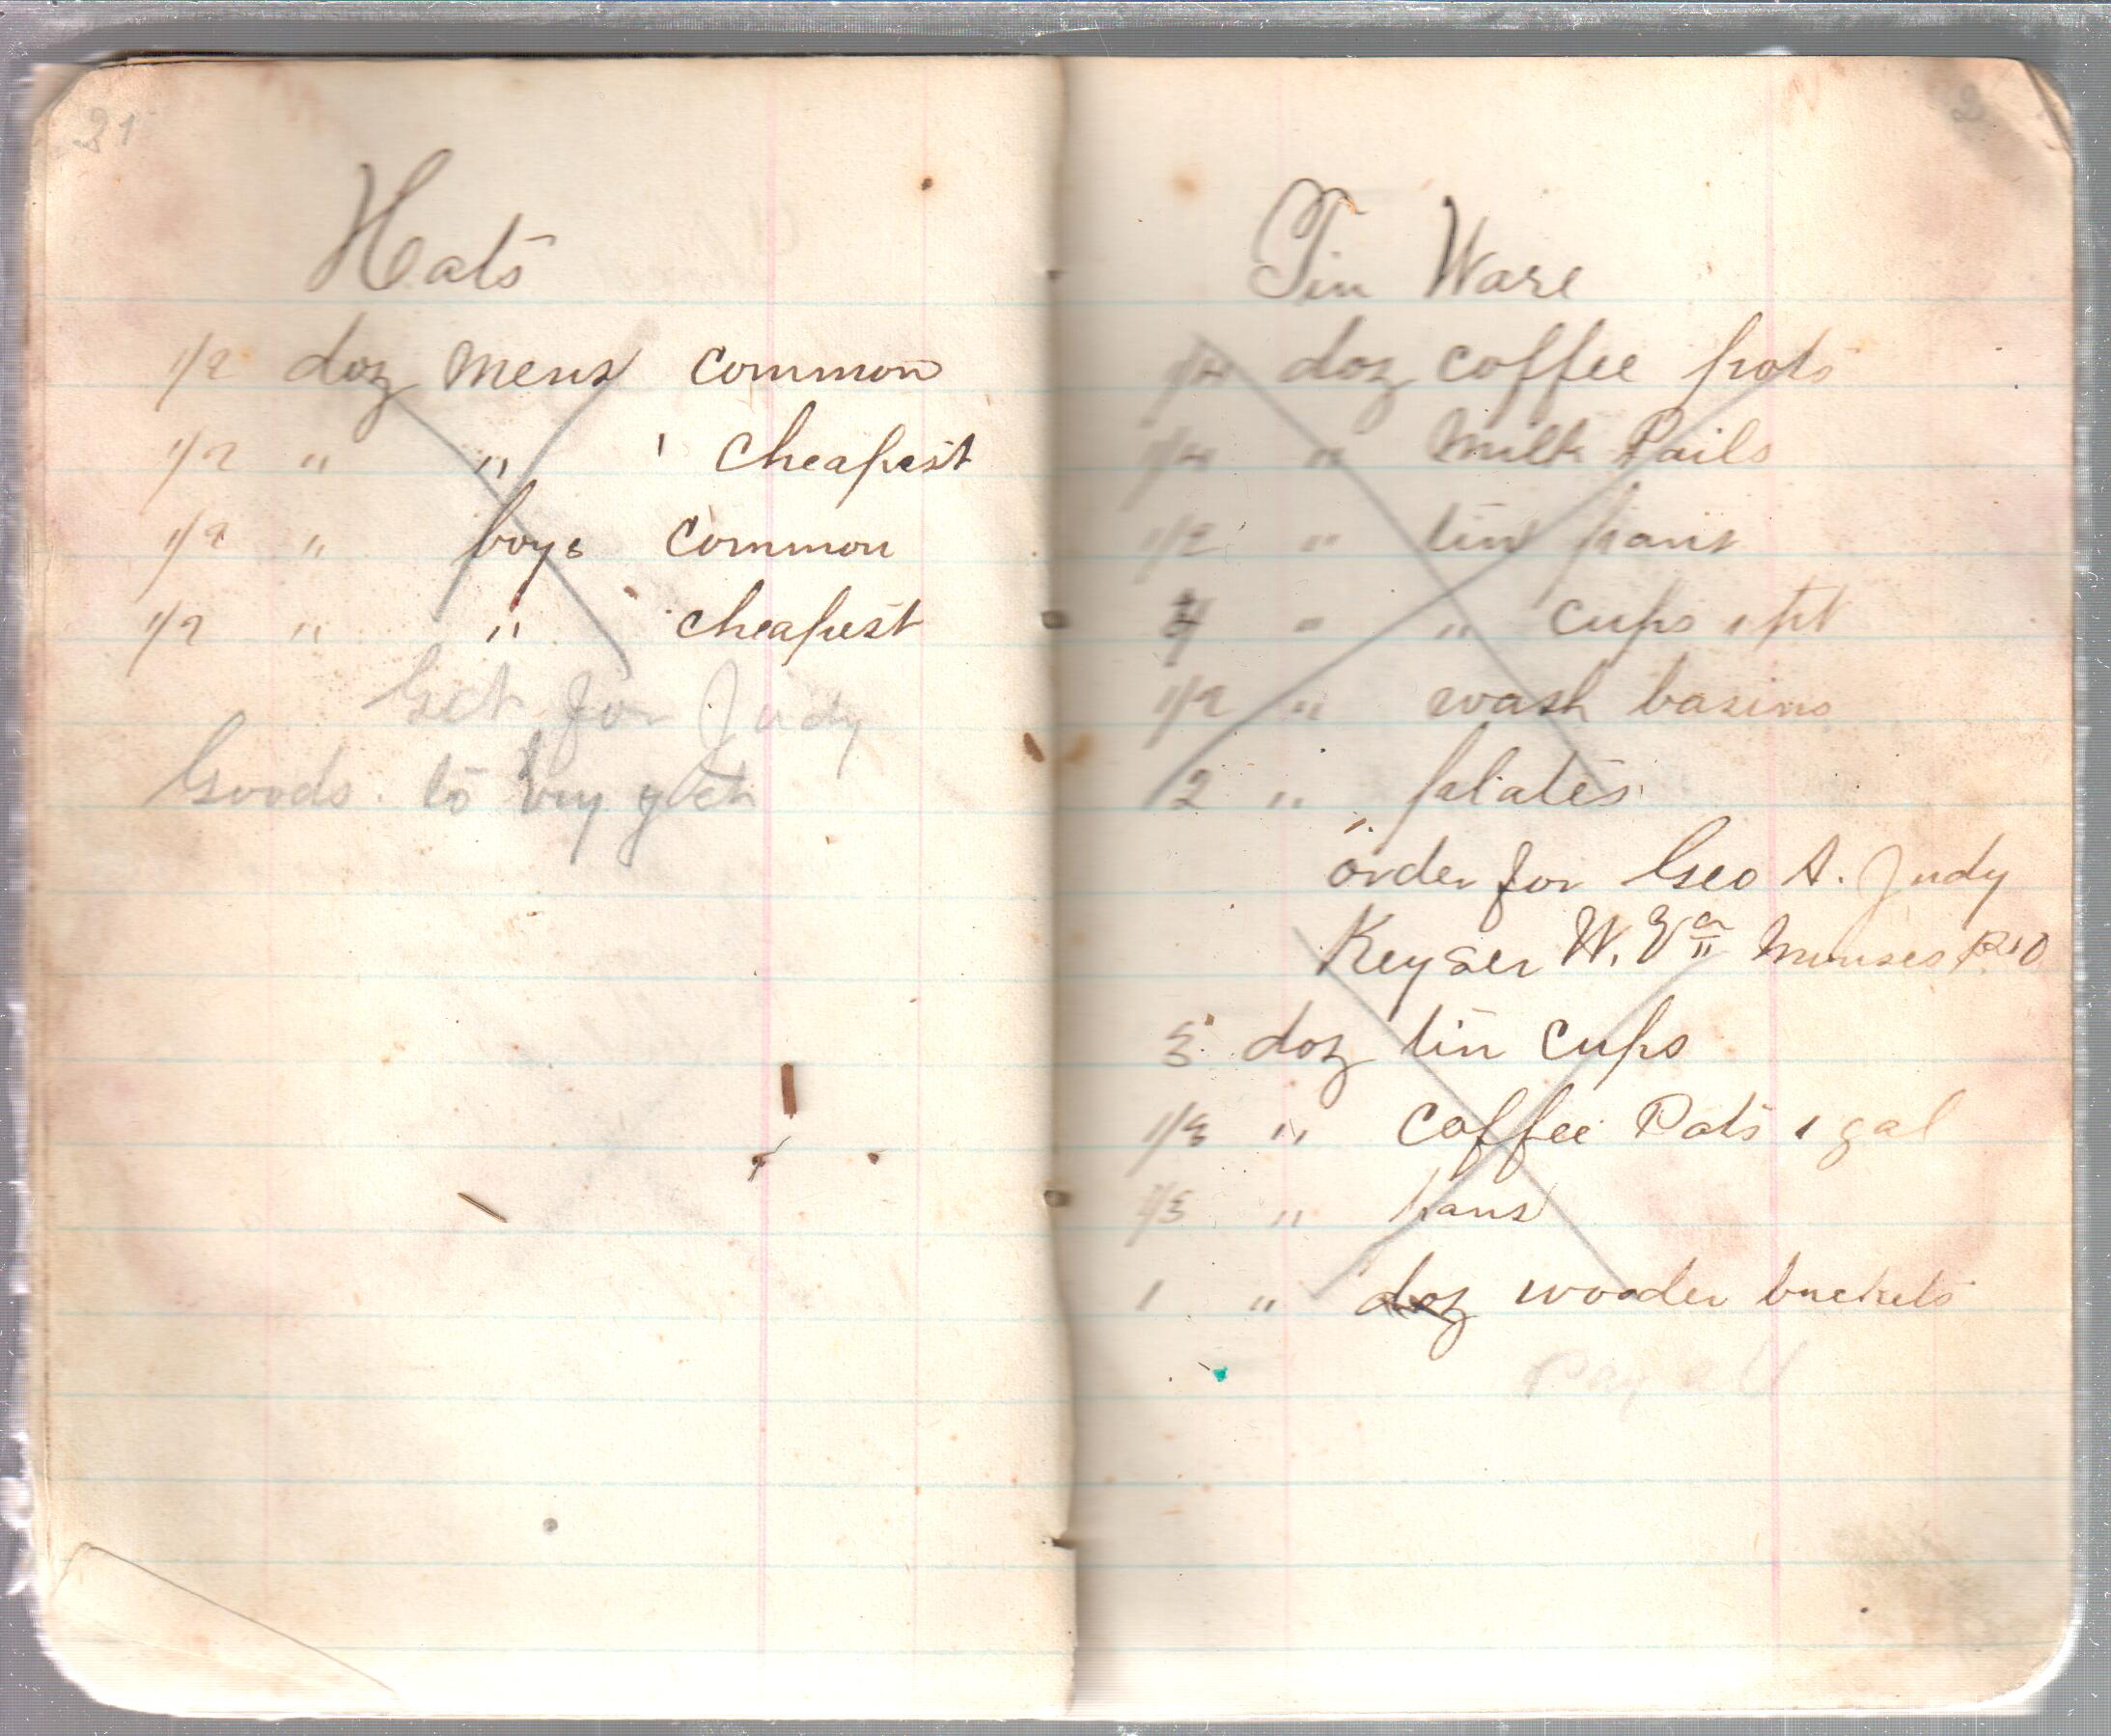 21
Hats
1/2 doz mens common
1/2 " " ' cheapest
1/2 " boys common
1/2 " " cheapest
Get for Judy
Goods to
2
Tin Ware
1/4 doz coffee pots
1/4 " Milk Pails
1/2 " tin pans
" " cups 1 pt
1/2 " wash basins
2 " plates
order for Geo A. Judy
Keyser W. Va
doz tin cups
" coffee Pots 1 gal
" pans
1 " doz wooden buckets
Pay all